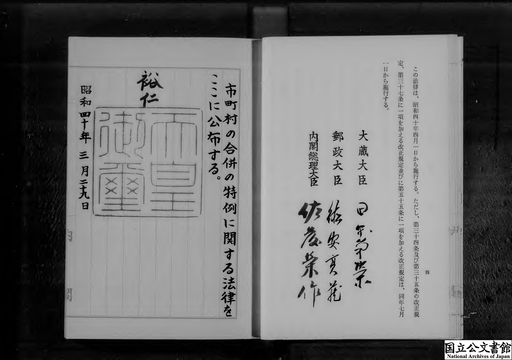 この法律は、昭和四十年四月一日から施行する。ただし、第三十四条及び第三十五条の改正規
定、第三十七条に一項を加える改正規定並びに第五十五条に一項を加える改正規定は、同年七月
一日から施行する。
大蔵大臣 田中角栄
郵政大臣
内閣総理大臣 佐藤榮作
四
市町村の合併の特例に関する法律を
ここに公布する。
裕仁
天皇
御璽
昭和四十年三月二九日
国立公文書館
National Archives of Japan